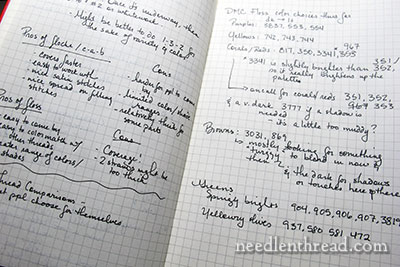 its underway, then
or whitework.
Might be better to do 1-3-2 for
the sake of variety & color?
Pros of floche / c-a-b
- covers faster
- easy to work with
- nice satin stitches
- nice spread on filling
stitches
Cons
- harder for ppl to come
by
- limited color/shade
ranges
- relatively thick for
some parts
Pros of floss
- easy to come by
- easy to color match w/
other threads
range of colors/
shades
Cons
- Coverage:
- 2 strands might be
too thick
Thread Comparisons -
ppl choose for themselves.
DMC Floss color choices thus far
Purples: 5237, 553, 554
Yellows: 742, 743, 744
Corals/Reds: 817, 350, 3341, 353
967
3341 is slightly brighter than 351/
352,
so it really brightens up the
palette
on call for coral reds 351, 352,
& a v. dark 3777 if a shadow is
needed
- it's a little too muddy?
Browns: 3031, 869
↳ mostly looking for something
to blend in now &
then & the dark for shadows
or touches here & there
Greens
Springy brights 904, 905, 906, 907, 3819
Yellowy olives 937, 580 581 472
needlenthread.com